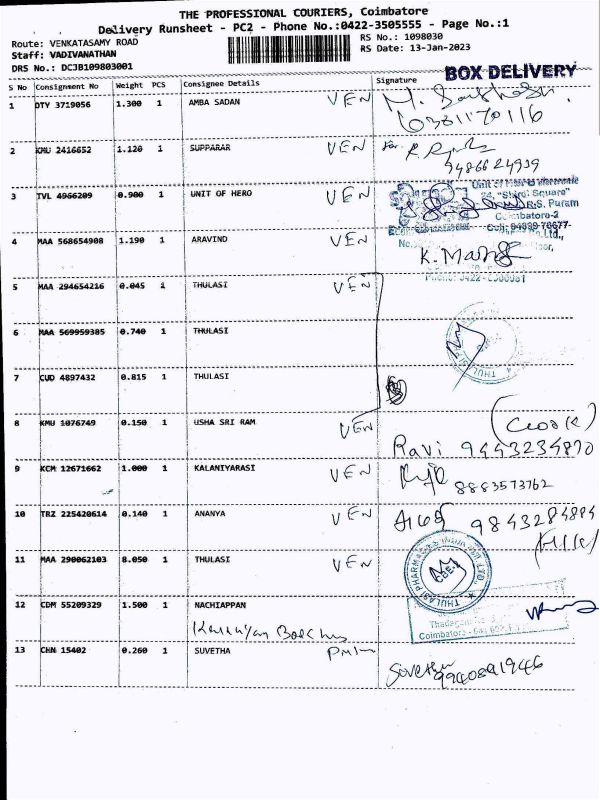 THE PROFESSIONAL COURIERS, Coimbatore
Delivery Runsheet - PC2 - Phone No.:0422-3505555 - Page No.:1
Route: VENKATASAMY ROAD
RS No.: 1098030
Staff: VADIVANATHAN
RS Date: 13-Jan-2023
DRS No.: DCJB109803001
BOX DELIVERY
S No Consignment No Weight PCS Consignee Details Signature
1 DTY 3719056 1.300 1 AMBA SADAN VEN
2 KMU 2416652 1.120 1 SUPPARAR VEN
9486624939
3 TVL 4966209 0.900 1 UNIT OF HERO VEN
24, "Shirdi Square"
R.S. Puram
Coimbatore-2
4 MAA 568654908 1.190 1 ARAVIND VEN
5 MAA 294654216 0.045 1 THULASI VEN
6 MAA 569959385 0.740 1 THULASI
7 CUD 4897432 0.815 1 THULASI
8 KMU 1076749 0.150 1 USHA SRI RAM VEN
Ravi 9443234870
9 KCM 12671662 1.000 1 KALANIYARASI VEN
8883573762
10 TRZ 225420614 0.140 1 ANANYA VEN
9843284884
11 MAA 290062103 8.050 1 THULASI VEN
THULASI PHARMACIES INDIA PVT LTD.
12 CDM 55209329 1.500 1 NACHIAPPAN
Coimbatore
13 CHN 15402 0.260 1 SUVETHA
Suvetha
9940891946